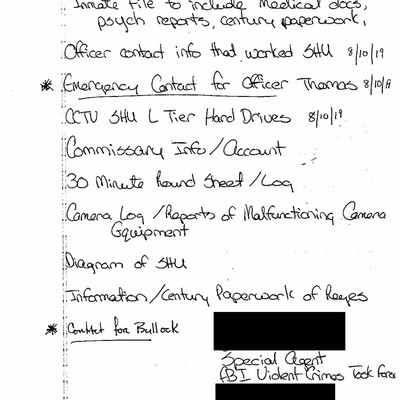 Inmate File to include Medical docs,
psych reports, century paperwork,
Officer contact info that worked SHU 8/10/19
* Emergency Contact for Officer Thomas 8/10/19
CCTV SHU L Tier Hard Drives 8/10/19
Commissary Info/Account
30 Minute Round Sheet/Log
Camera Log/Reports of Malfunctioning Camera
Equipment
Diagram of SHU
Information/Century Paperwork of Reyes
* Contact for Bullock
Special Agent
FBI Violent Crimes Task Force